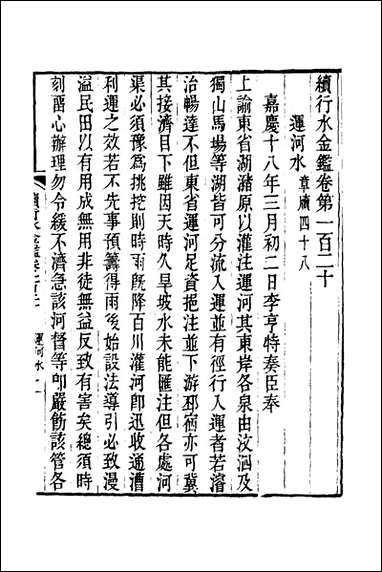 續行水金鑑卷第一百二十
運河水章牘四十八
嘉慶十八年三月初二日李亨特奏臣奉
上諭東省湖瀦原以灌注運河其東岸各泉由汶泗及
獨山馬塲等湖皆可分流入運並有徑行入運者若濬
治暢達不但東省運河足資挹注並下游邳宿亦可冀
其接濟目下雖因天時久旱坡水未能匯注但各處河
渠必須豫爲挑挖則時雨既降百川灌河卽迅收通漕
利運之效若不先事預籌得雨後始設法導引必致漫
溢民田以有用成無用非徒無益反致有害矣總須時
刻留心辦理勿令緩不濟急該河督等卽嚴飭該管各
運河水 一